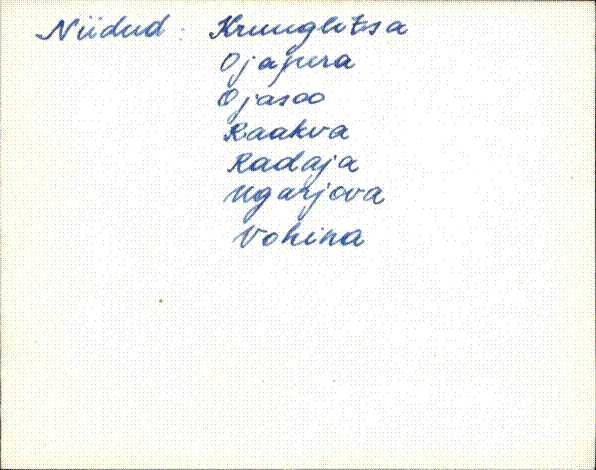 Niidud : Kruuglitsa
Ojapera
Ojasoo
Raakva
Radaja
Ugarjova
Vohina